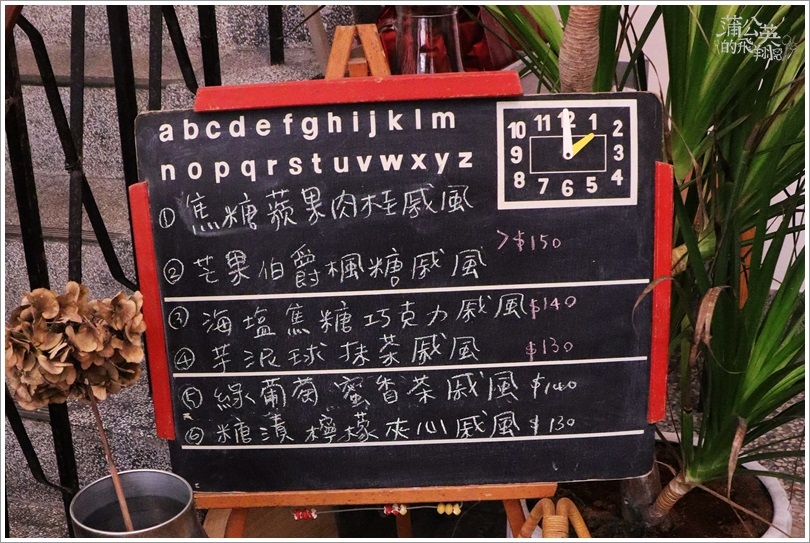 蒲公英
的飛翔窩
abcdefghijklm
nopqrstuvwxyz
10 11 12 1 2
9 3
8 7 6 5 4
① 焦糖蘋果肉桂戚風
>$150
② 芒果伯爵楓糖戚風
③ 海塩焦糖巧克力戚風 $140
④ 芋泥球抹茶戚風 $130
⑤ 綠葡萄蜜香茶戚風 $140
⑥ 糖漬檸檬夾心戚風 $130